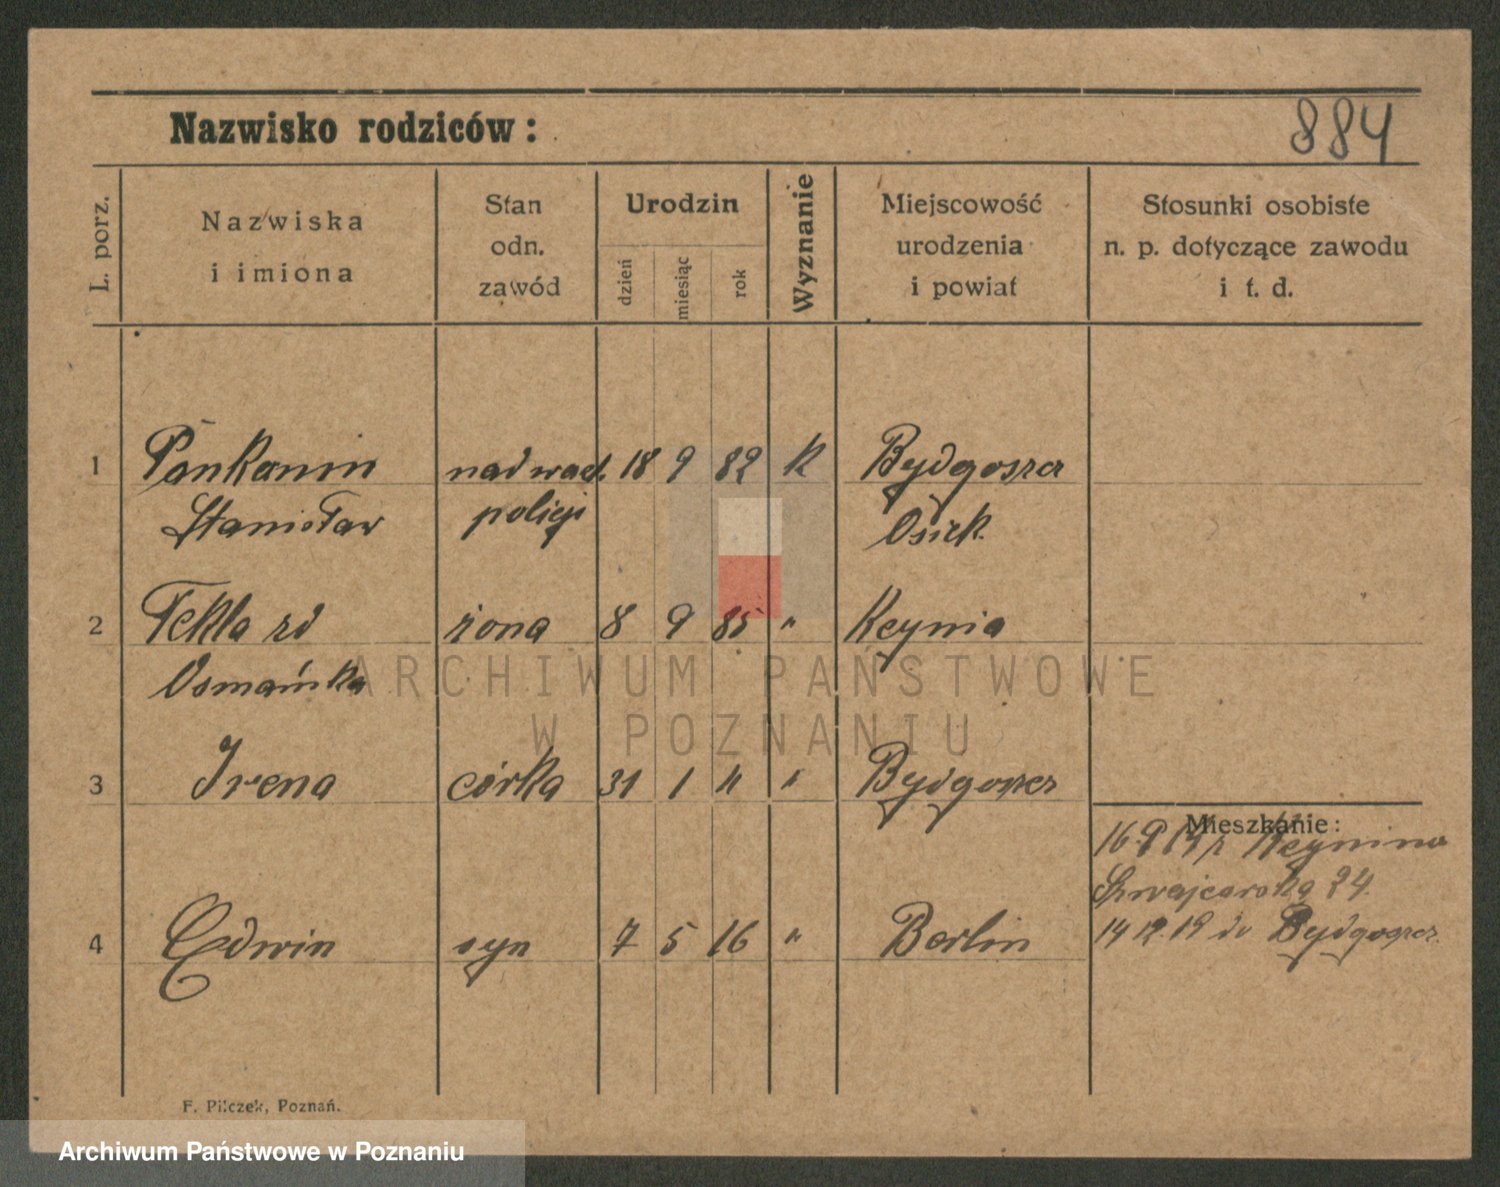 Nazwisko rodziców:
884
L. porz.
Nazwiska
i imiona
Stan
odn.
zawód
Urodzin
dzień
miesiąc
rok
Wyznanie
Miejscowość
urodzenia
i powiat
Stosunki osobiste
n. p. dotyczące zawodu
i t. d.
1 Pankanin nadwach. 18 9 82 K Bydgoszcz
Stanisław policji Osiek.
2 Tekla żona 8 9 85 " Keynia
Osmańska
3 Irena córka 31 1 11 " Bydgoszcz
Mieszkanie:
16 9 19 z Keynina
Szwajcarska 24.
4 Edwin syn 7 5 16 " Berlin
14 12 19 do Bydgoszcz.
F. Pilczek, Poznań.
ARCHIWUM PAŃSTWOWE
W POZNANIU
Archiwum Państwowe w Poznaniu